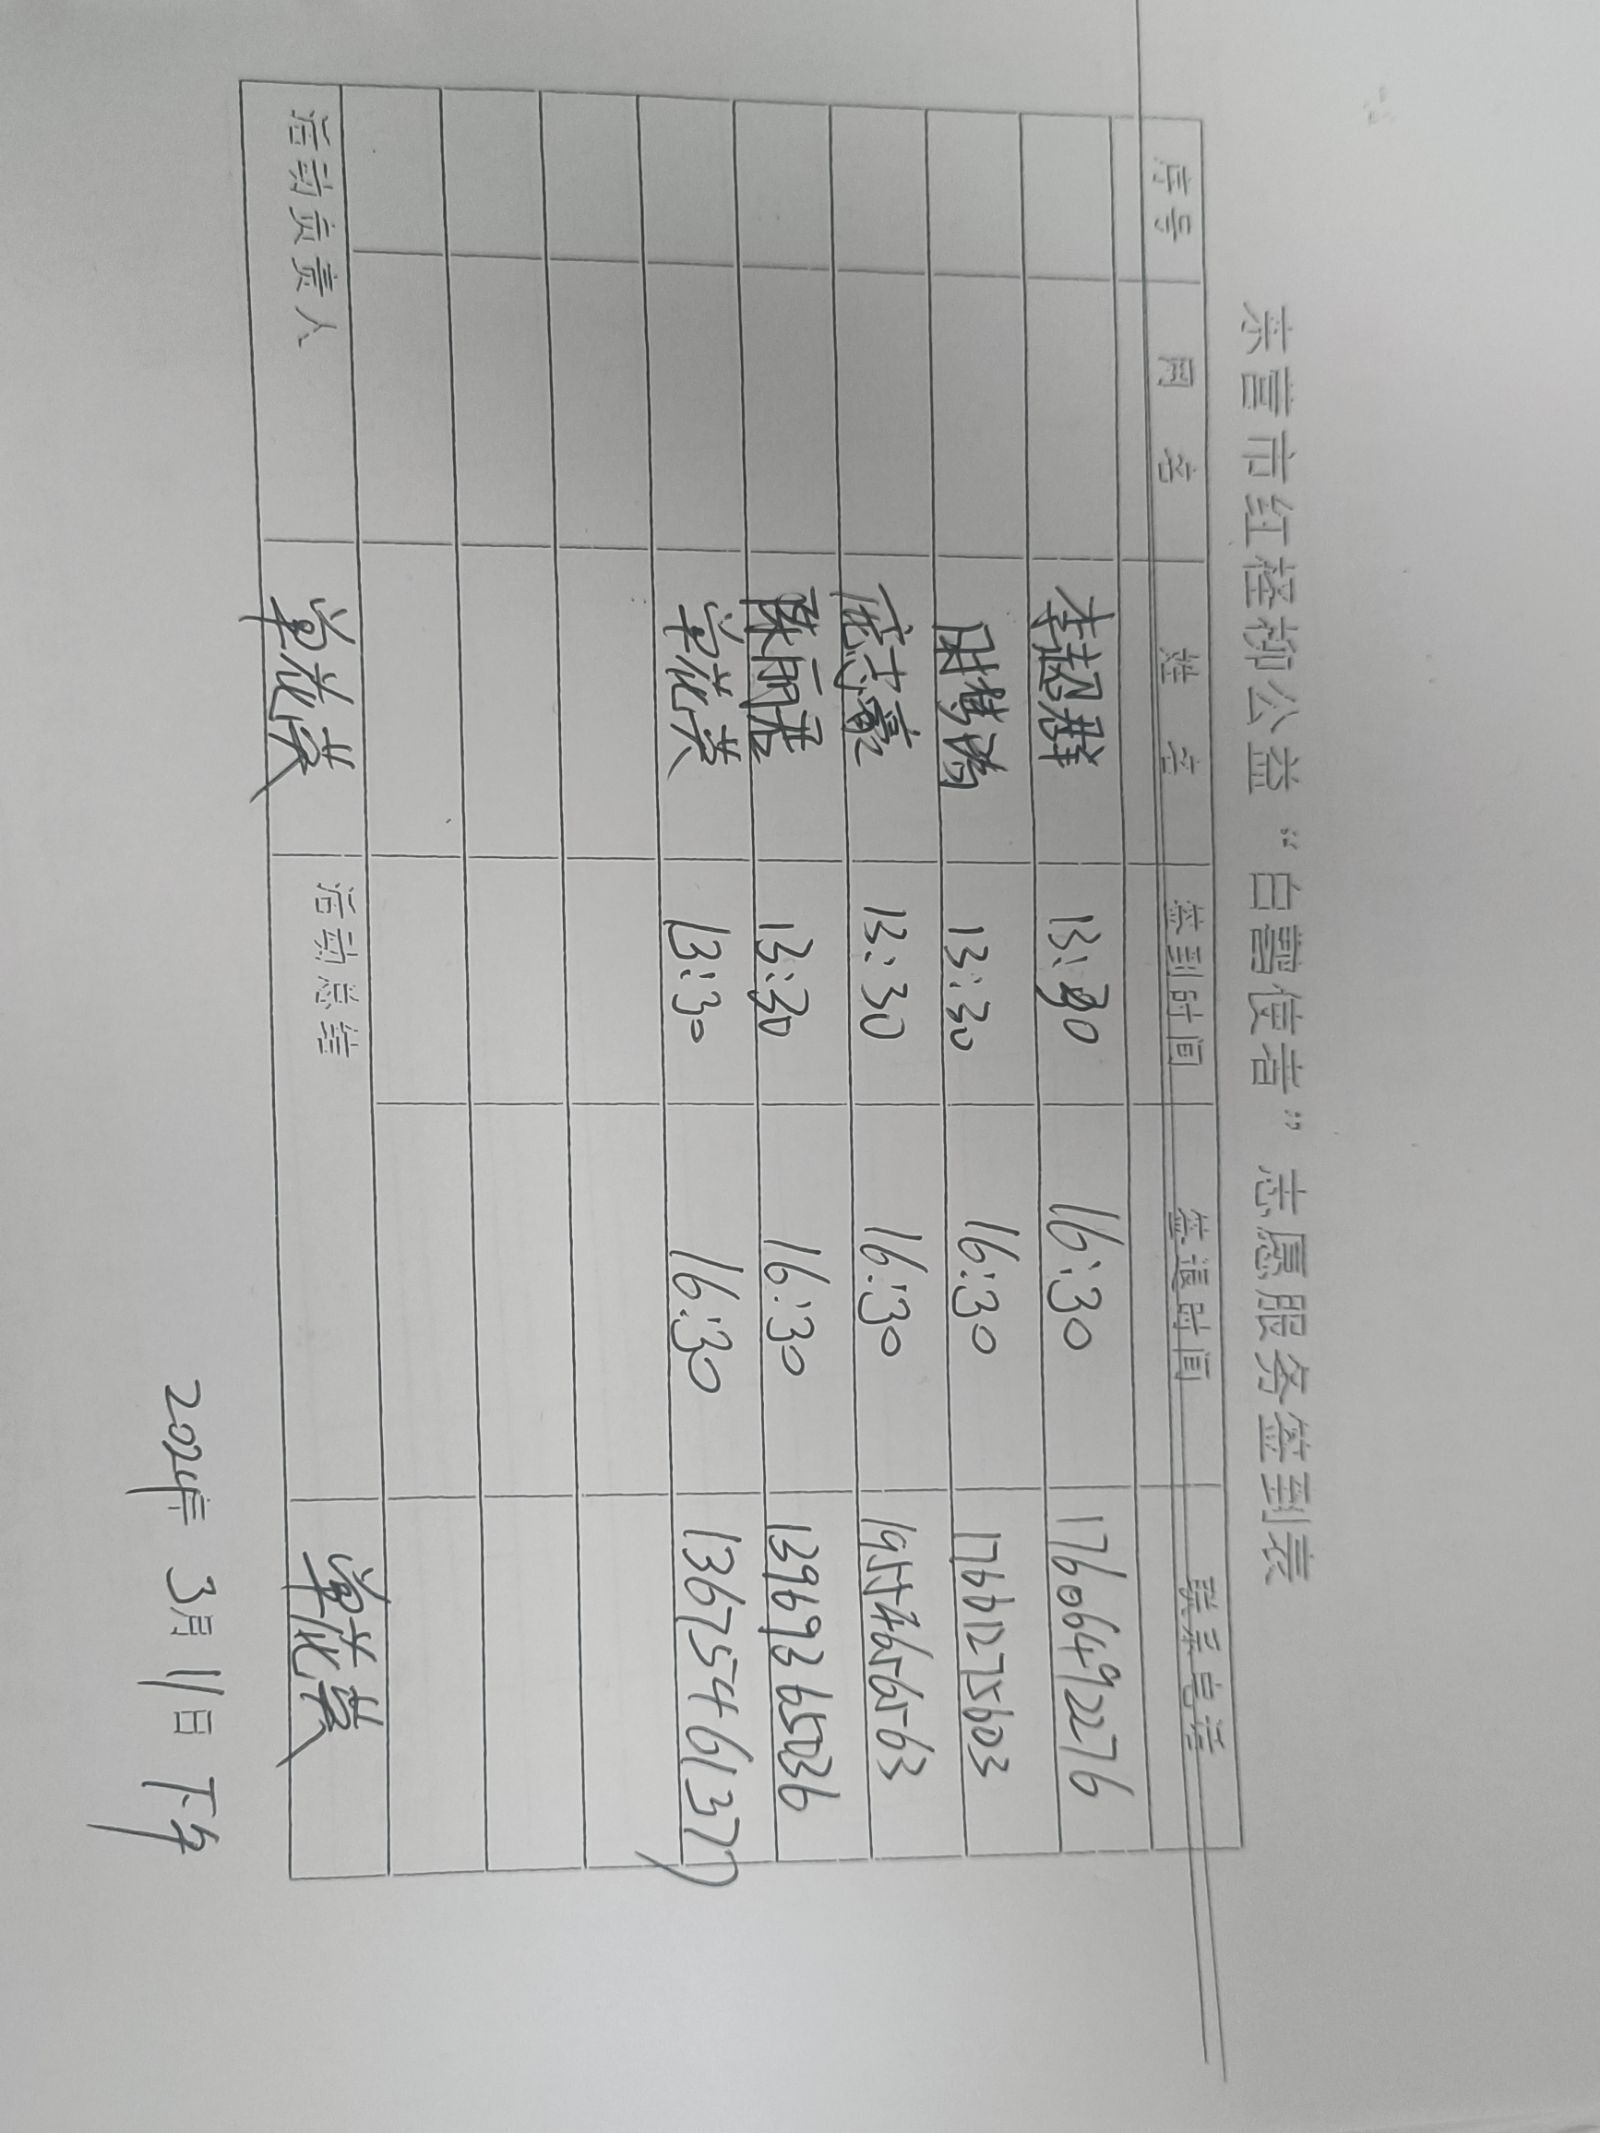 东营市红柽柳公益“白鹭使者”志愿服务签到表
序号 网名 姓名 签到时间 签退时间 联系电话
李超群 13:30 16:30 17606492276
13:30 16:30 17661275603
庞志豪 13:30 16:30 19554656563
陈丽君 13:30 16:30 13969365036
单花芙 13:30 16:30 13675461377
活动负责人 单花芙 活动总结 单花芙
2024年 3月11日 下午